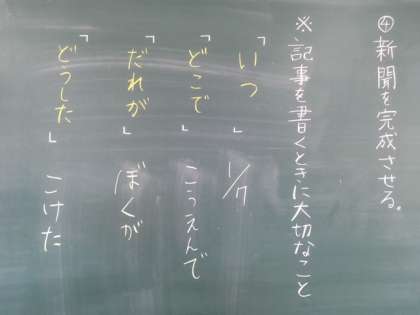 ④新聞を完成させる。
※記事を書くときに大切なこと
「いつ」 1/7
「どこで」 こうえんで
「だれが」 ぼくが
「どうした」 こけた